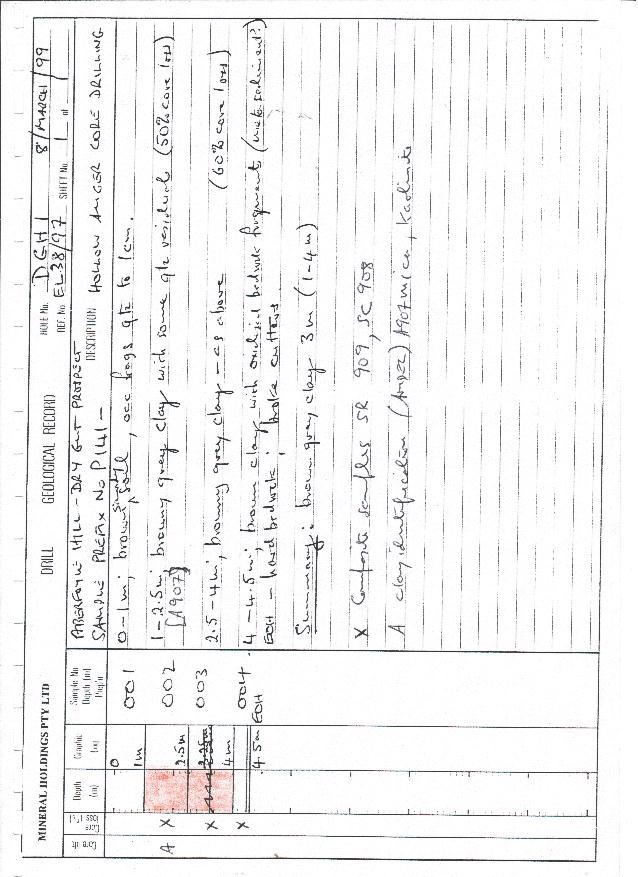 MINERAL HOLDINGS PTY LTD DRILL GEOLOGICAL RECORD HOLE No. DGH1 8/MARCH/99
REF. No. EL38/97 SHEET No. 1 of 1
Core lift Core loss (%) Depth (m) Graphic Log Sample No Depth (m) Prefix DESCRIPTION
ABERFOYLE HILL - DRY GUT PROSPECT
SAMPLE PREFIX No P1141 - HOLLOW AUGER CORE DRILLING
0 1m 001 0-1m; brown sandy soil, occ frags qtz to 1cm.
A X 2.5m 002 1-2.5m; browny grey clay with some qtz residual (50% core loss)
[A907]
X 4m 003 2.5-4m; browny grey clay - as above (60% core loss)
X 4.5m EOH 004 4-4.5m; brown clay with oxidised bedrock fragments (meta sediment?)
EOH - hard bedrock; broke cutters.
Summary: brown grey clay 3m (1-4m)
X Composite samples SR 909, SC 908
A clay identification (Amdel) A907 mica, kaolinite